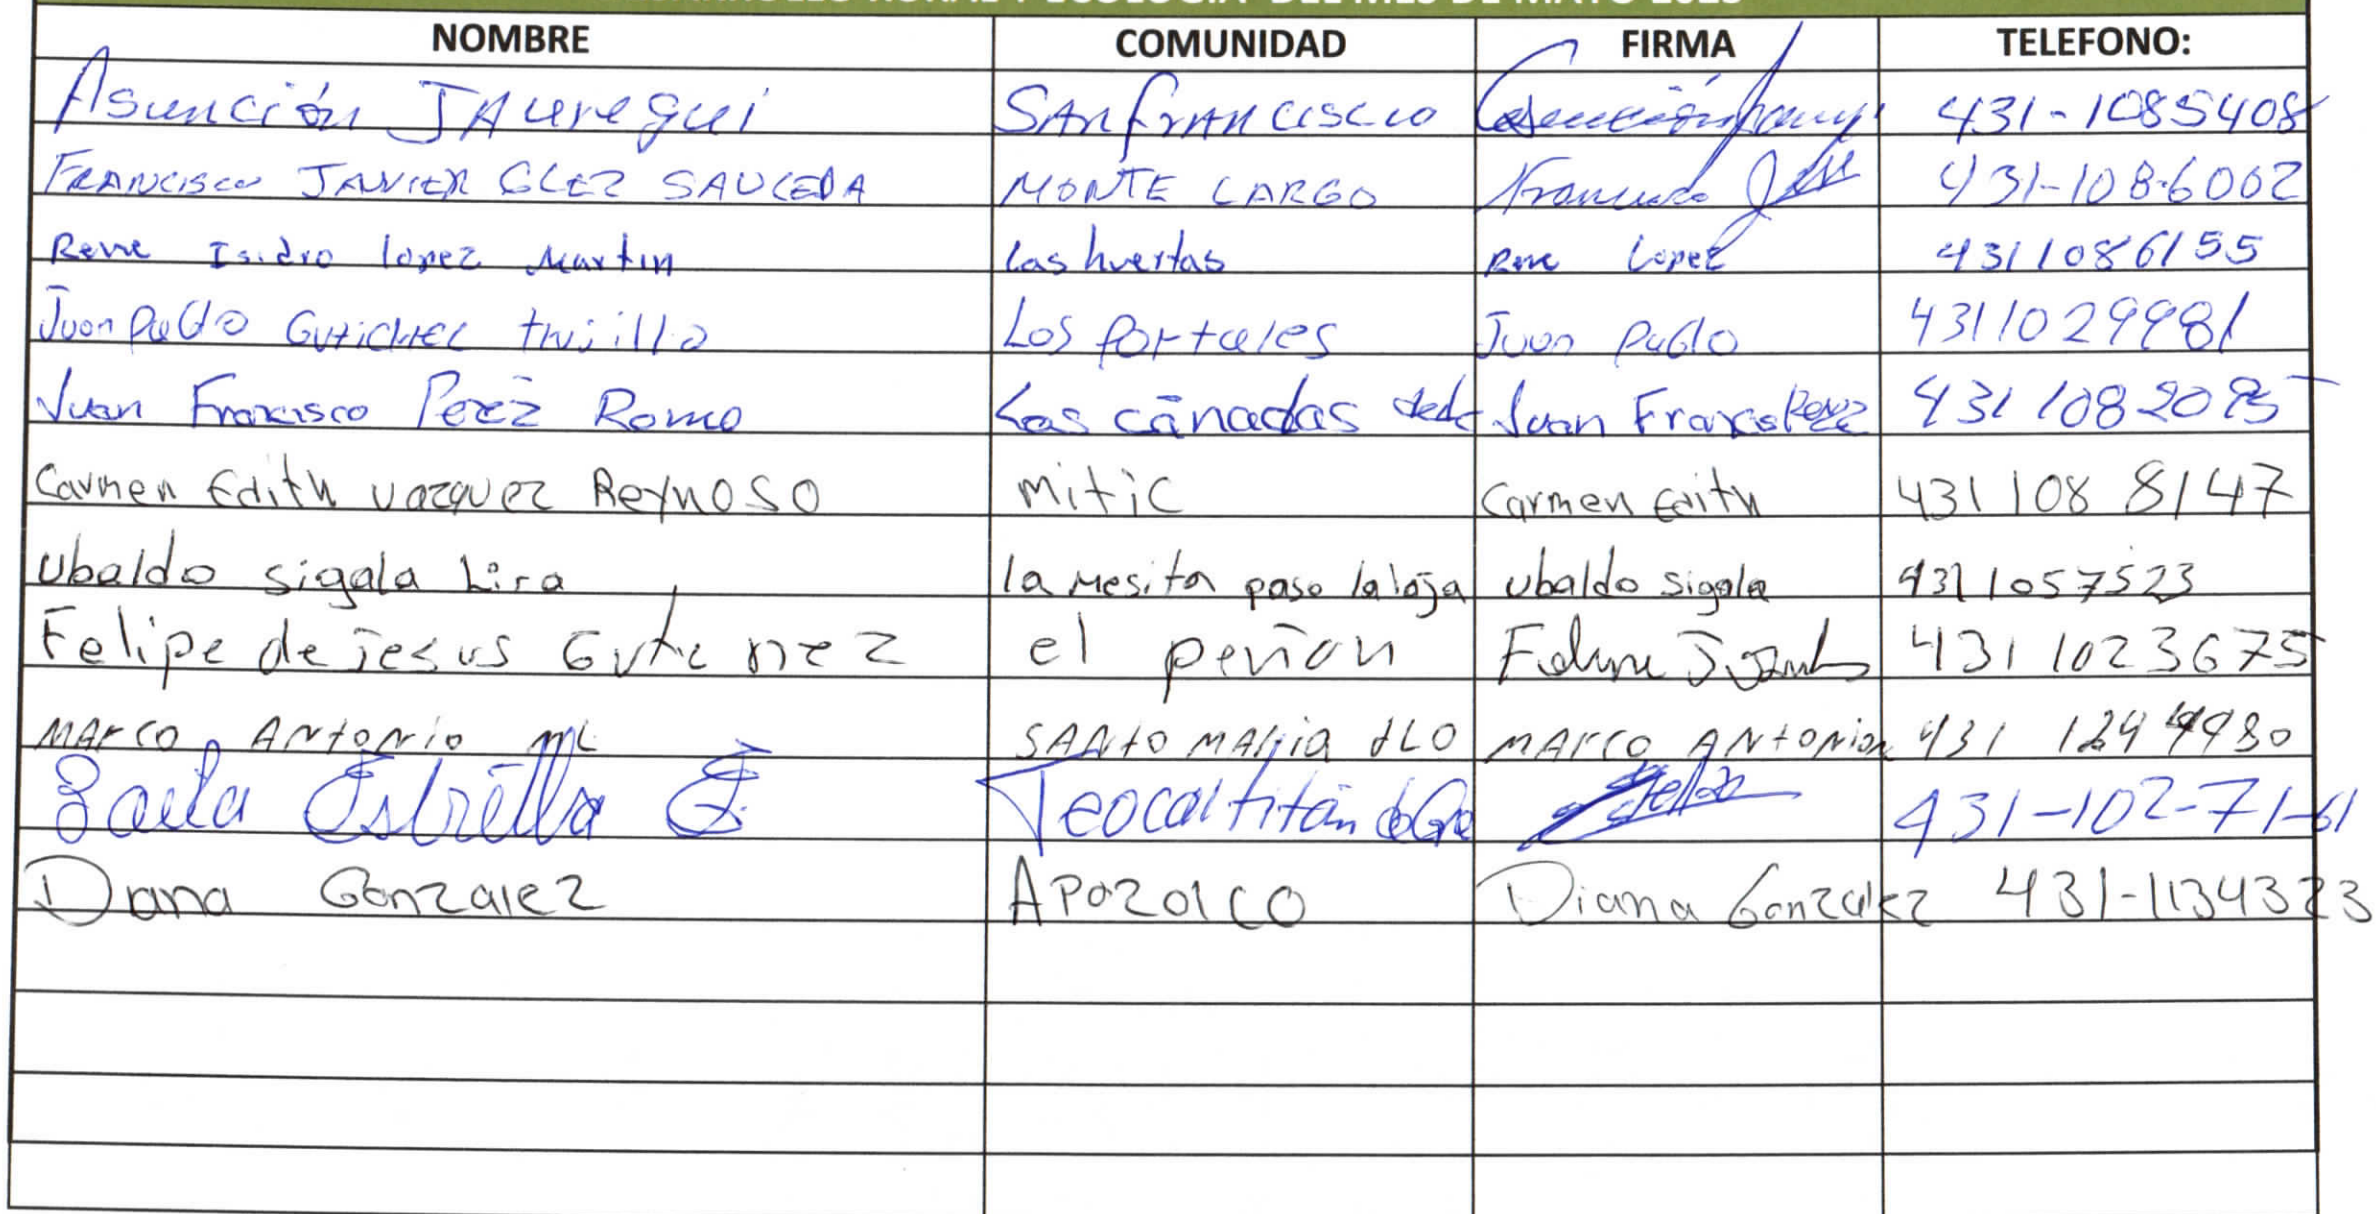 RURAL Y ECOLOGIA DEL MES DE MAYO
NOMBRE COMUNIDAD FIRMA TELEFONO:
Asunción JAuregui SAnfrAnciscio 431-1085408
FRANCISCO JAVIER GLEZ SAUCEDA MONTE LARGO Francisco 431-108-6002
Rene Isidro lopez Martin las huertas Rene Lopez 4311086155
Juan Pablo Gutierrez trujillo Los portales Juan Pablo 4311029981
Juan Francisco Perez Romo Las cãnadas Juan Francisco Perez 431108
Carmen Edith vazquez Reynoso mitic Carmen Edith 431108 8147
Ubaldo sigala Lira la Mesita paso la laja Ubaldo sigala 4311057523
Felipe de jesus Gutierrez el peñon 4311023675
MArco ANtoNio ML SANto MAria MArco ANtoNio 431
Estrella E. Teocaltitán 431-102-71-61
Diana Gonzalez Apozolco Diana Gonzalez 431-1134323